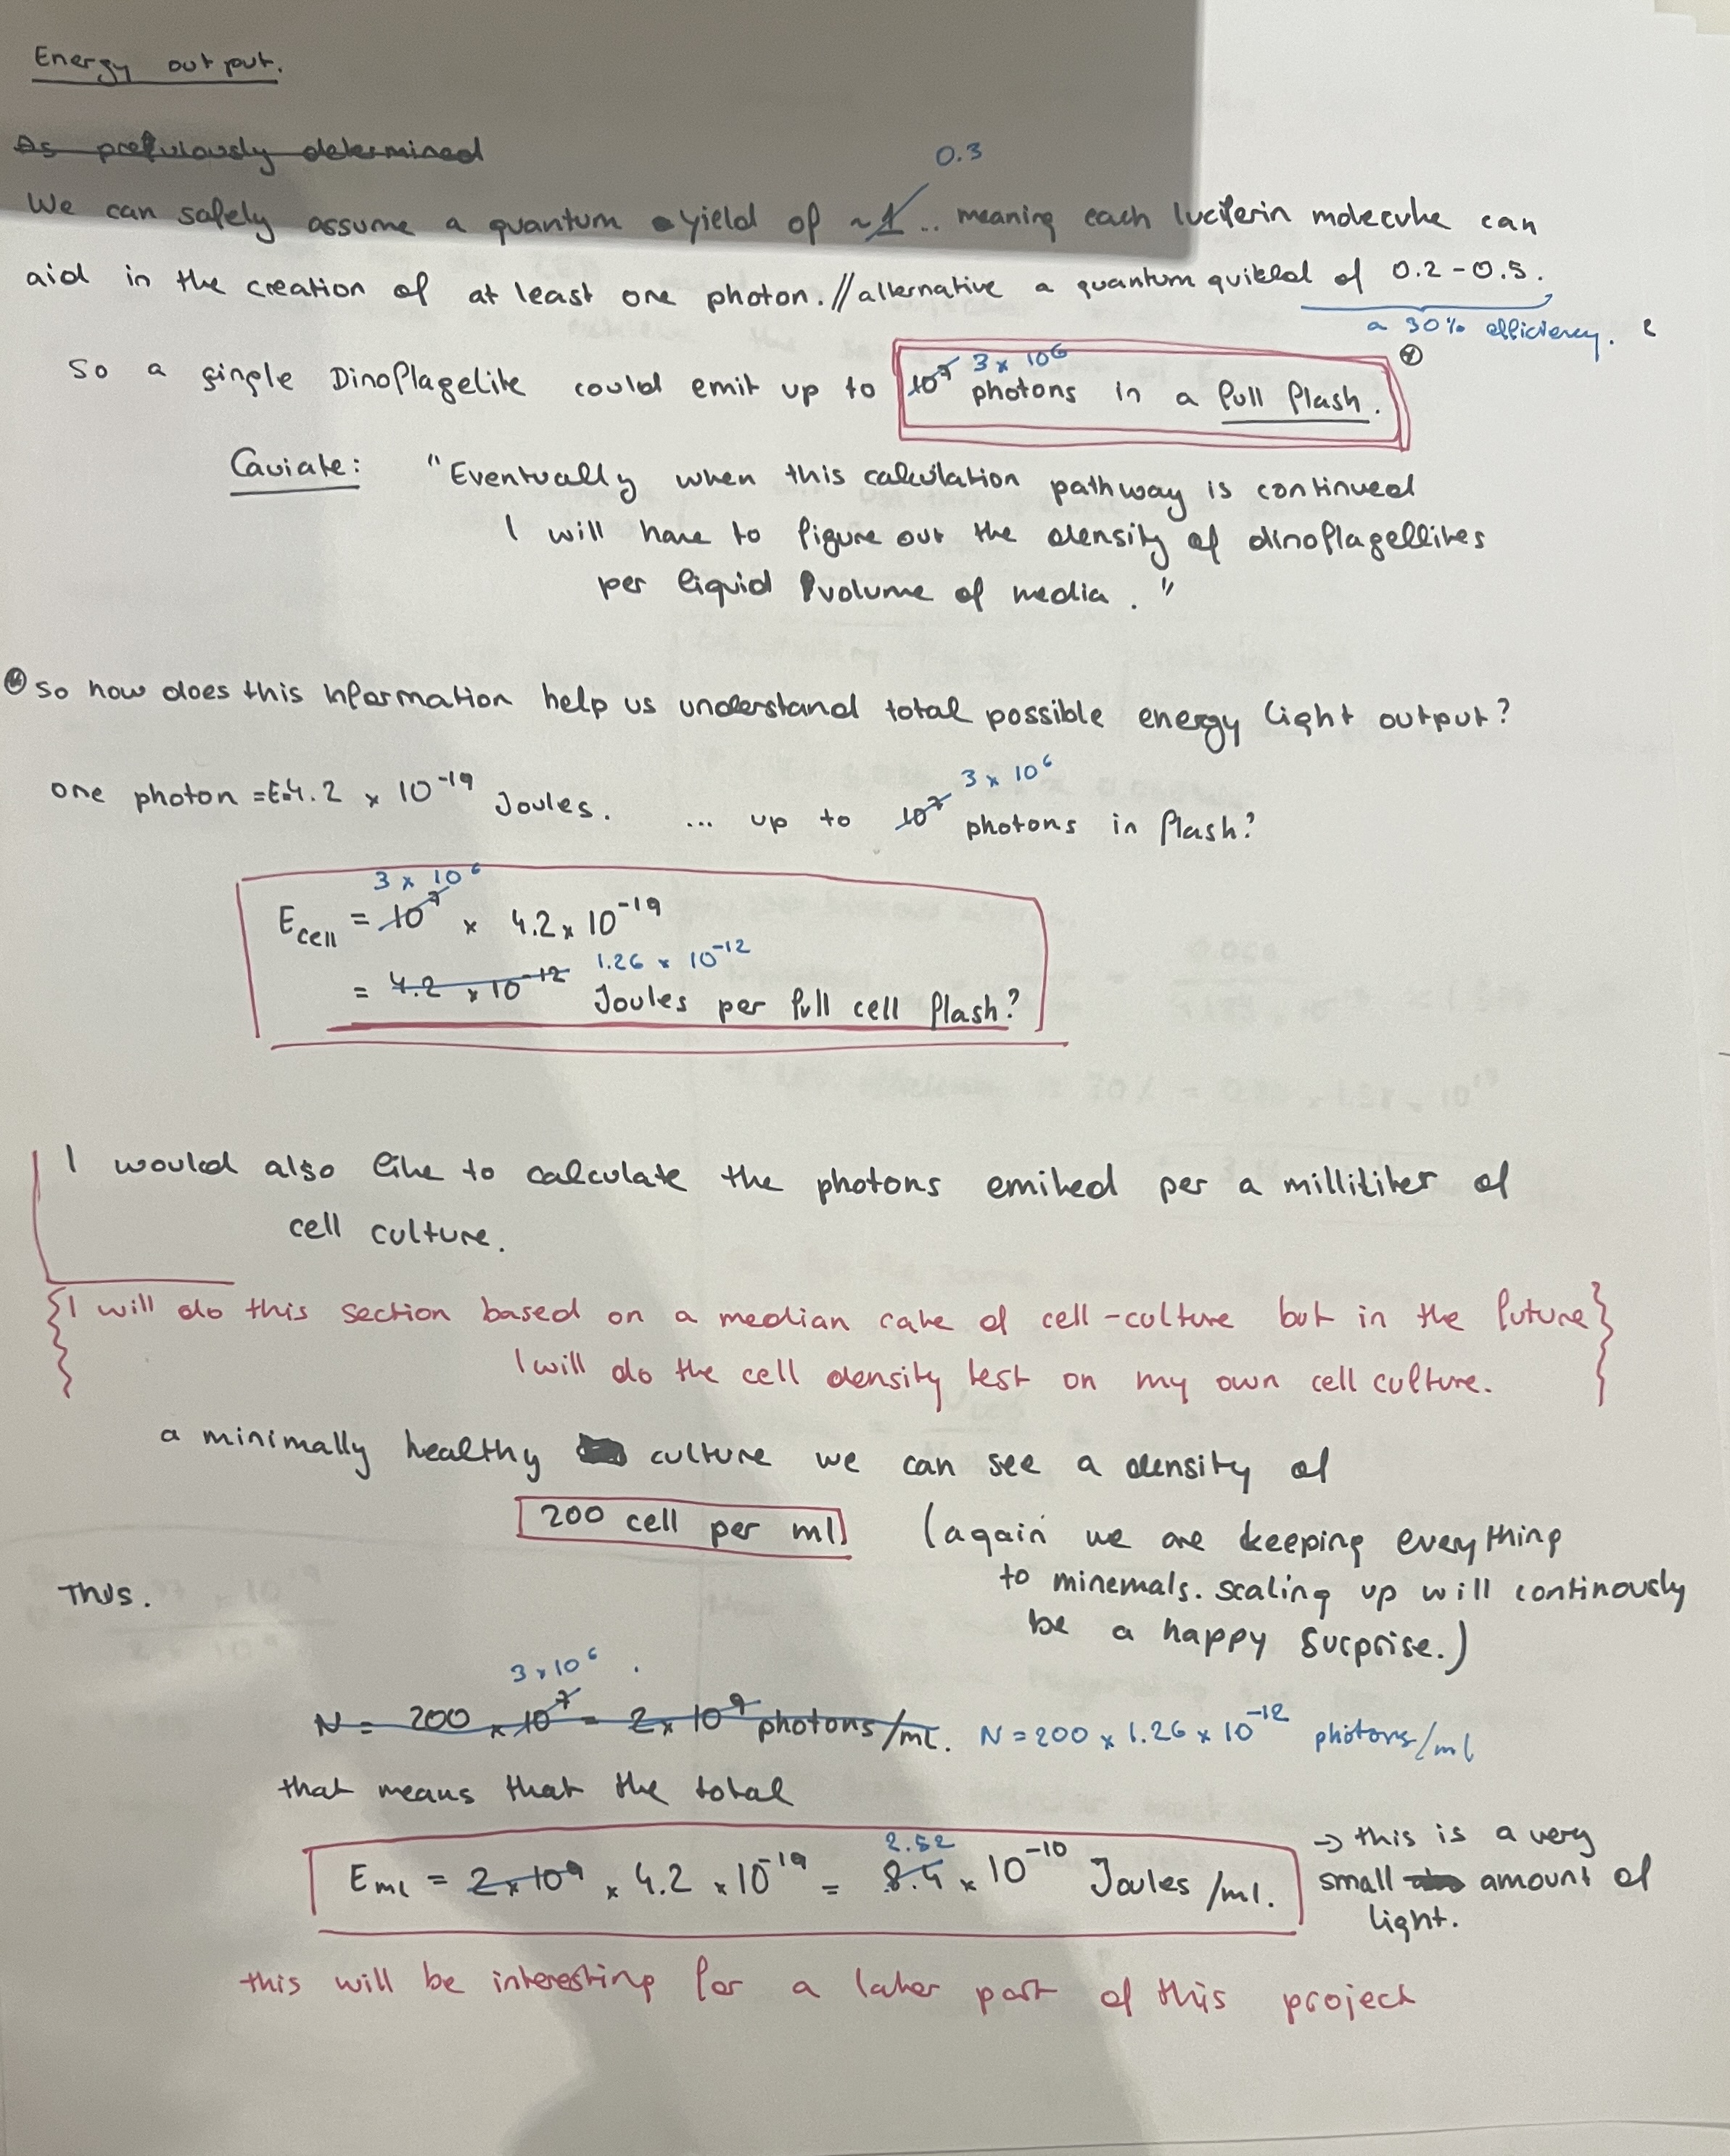 Energy output.
As prefulously determined
0.3
We can safely assume a quantum yield of ~1.. meaning each luciferin molecule can
aid in the creation of at least one photon. // alternative a quantum quikled of 0.2-0.5.
a 30% efficiency.
So a single Dinoflagelite could emit up to 10⁷ 3 x 10⁶ photons in a full flash.
Caviate: "Eventually when this calculation pathway is continued
I will have to figure out the density of dinoflagellites
per liquid volume of media."
so how does this information help us understand total possible energy light output?
one photon =E=4.2 x 10⁻¹⁹ Joules. ... up to 10⁷ 3 x 10⁶ photons in flash?
3 x 10⁶
E cell = 10⁷ x 4.2 x 10⁻¹⁹
= 4.2 x 10⁻¹² 1.26 x 10⁻¹² Joules per full cell flash?
I would also like to calculate the photons emitted per a milliliter of
cell culture.
{I will do this section based on a median cake of cell-culture but in the future}
I will do the cell density test on my own cell culture.
a minimally healthy culture we can see a density of
200 cell per ml (again we are keeping everything
to minemals. scaling up will continously
be a happy surprise.)
Thus.
3 x 10⁶
N = 200 x 10⁷ = 2 x 10⁹ photons/ml. N = 200 x 1.26 x 10⁻¹² photons/ml
that means that the total
2.52
E ml = 2 x 10⁹ x 4.2 x 10⁻¹⁹ = 8.4 x 10⁻¹⁰ Joules/ml.
→ this is a very
small amount of
light.
this will be interesting for a later part of this project